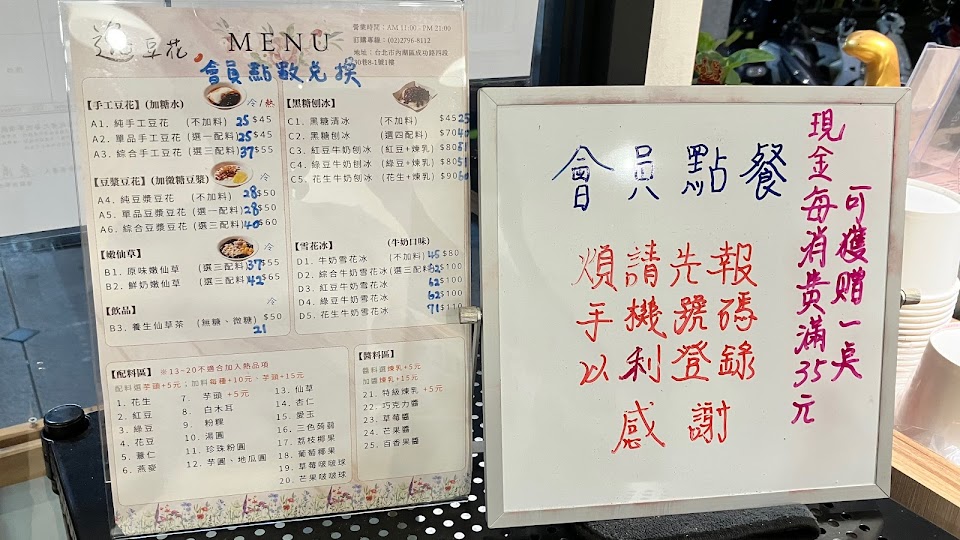 豆花
MENU
營業時間：AM 11:00 - PM 21:00
訂購專線：(02)2796-8112
地址：台北市內湖區成功路四段
30巷8-1號1樓
會員點數兌換
【手工豆花】(加糖水)
冷/熱
A1. 純手工豆花 (不加料) 25 $45
A2. 單品手工豆花 (選一配料) 25 $45
A3. 綜合手工豆花 (選三配料) 37 $55
【豆漿豆花】(加微糖豆漿)
冷
A4. 純豆漿豆花 (不加料) 28 $50
A5. 單品豆漿豆花 (選一配料) 28 $50
A6. 綜合豆漿豆花 (選三配料) 40 $60
【嫩仙草】
冷
B1. 原味嫩仙草 (選三配料) 37 $55
B2. 鮮奶嫩仙草 (選三配料) 42 $65
【飲品】
冷
B3. 養生仙草茶 (無糖、微糖) $50
21
【黑糖刨冰】
C1. 黑糖清冰 (不加料) $45 25
C2. 黑糖刨冰 (選四配料) $70 40
C3. 紅豆牛奶刨冰 (紅豆+煉乳) $80 51
C4. 綠豆牛奶刨冰 (綠豆+煉乳) $80 51
C5. 花生牛奶刨冰 (花生+煉乳) $90
【雪花冰】 (牛奶口味)
D1. 牛奶雪花冰 (不加料) 45 $80
D2. 綜合牛奶雪花冰 (選三配料) 62 $100
D3. 紅豆牛奶雪花冰 62 $100
D4. 綠豆牛奶雪花冰 62 $100
D5. 花生牛奶雪花冰 71 $110
【配料區】 ※13~20不適合加入熱品項
配料選芋頭+5元；加料每種+10元、芋頭+15元
1. 花生
2. 紅豆
3. 綠豆
4. 花豆
5. 薏仁
6. 燕麥
7. 芋頭 +5元
8. 白木耳
9. 粉粿
10. 湯圓
11. 珍珠粉圓
12. 芋圓、地瓜圓
13. 仙草
14. 杏仁
15. 愛玉
16. 三色蒟蒻
17. 荔枝椰果
18. 葡萄椰果
19. 草莓啵啵球
20. 芒果啵啵球
【醬料區】
醬料選煉乳+5元
加醬煉乳+15元
21. 特級煉乳 +5元
22. 巧克力醬
23. 草莓醬
24. 芒果醬
25. 百香果醬
會員點餐
煩請先報
手機號碼
以利登錄
感謝
現金每消費滿35元
可獲贈一點